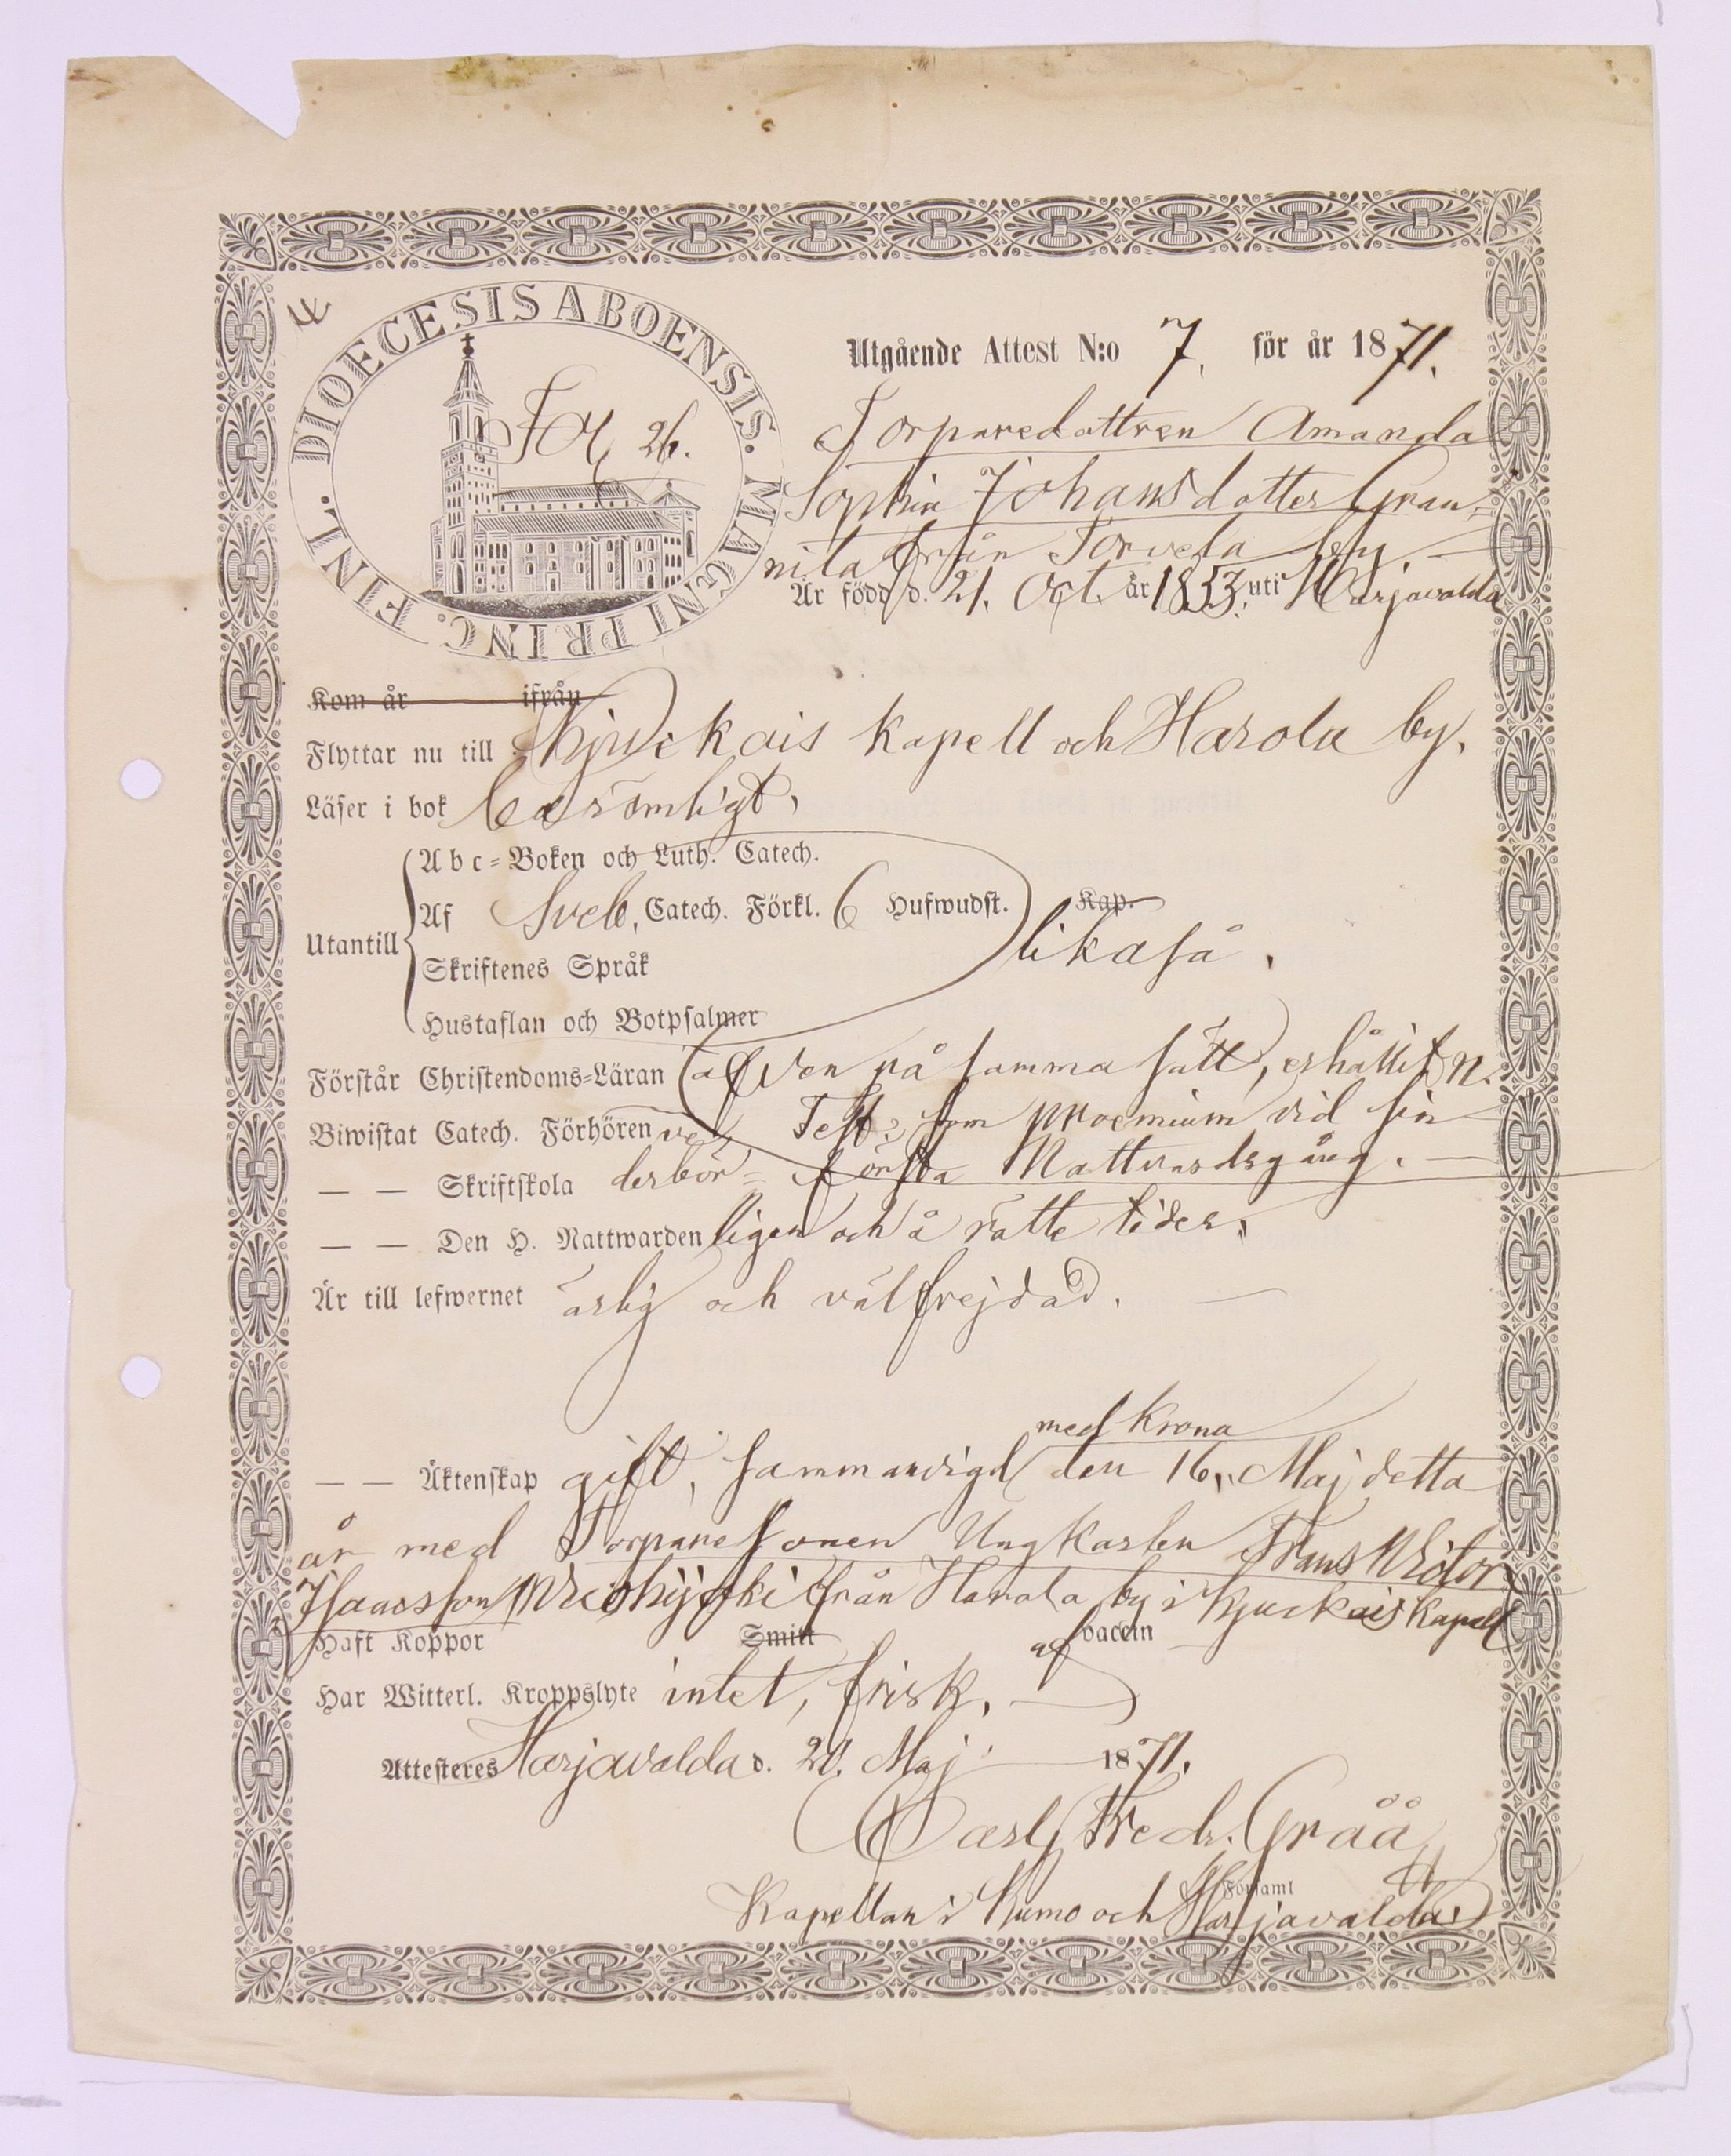 DIOECESIS ABOENSIS. MAGNI PRINC. FINL.
26.
Utgående Attest N:o 7. för år 1871.
Torparedottren Amanda
Sophia Johansdotter Gran-
nila från Torvela by
Är född d. 21. Oct. år 1853. uti Harjavalda
Kom år ifrån
Flyttar nu till Kjuckais Kapell och Harola by.
Läser i bok berömligt,
Abc=Boken och Luth. Catech.
Utantill Af Sveb. Catech. Förkl. 6 Hufwudst. Kap.
likaså.
Skriftenes Språk
Hustaflan och Botpsalmer
Förstår Christendoms=Läran äfven på samma sätt, erhållit N.
Biwistat Catech. Förhören ve- Test. som proemium vid sin
— — Skriftskola derbör= första Nattvardsgång. —
— — Den H. Nattwarden ligen och å rätte tider.
Är till lefwernet ärlig och välfrejdad. —
med Krona
— — Äktenskap gift, sammanvigd den 16. Maj detta
år med Torparesonen Ungkarlen Frans Victor
Isaacsson från Harola by i Kjuckais Kapell
Haft Koppor Smitt af vaccin
Har Witterl. Kroppslyte intet, frisk. —
Attesteres Harjavalda d. 20. Maj 1871.
Carl Fredr. Gråå
Kapellan i Kumo och Harjavalda
Församl